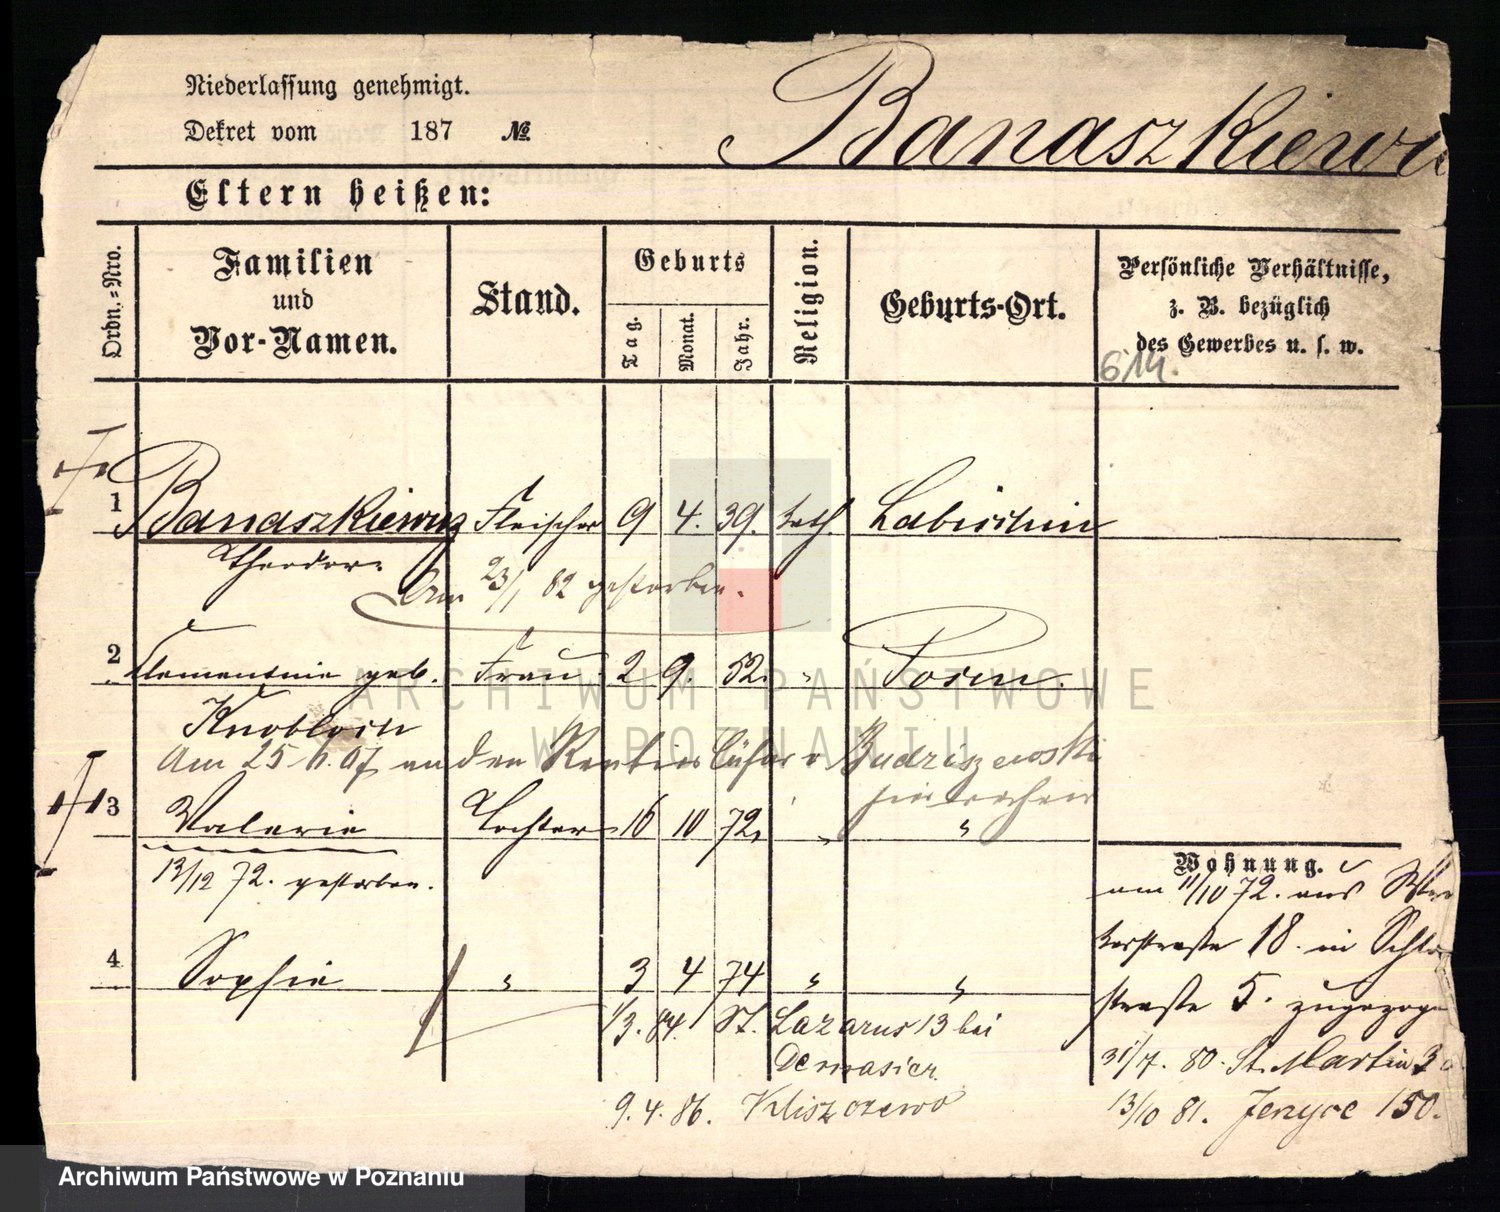 Niederlassung genehmigt.
Dekret vom 187 №
Banaszkiewic
Eltern heißen:
Ordn.-Nro.
Familien und Vor-Namen.
Stand.
Geburts
Tag. Monat. Jahr.
Religion.
Geburts-Ort.
Persönliche Verhältnisse,
z. B. bezüglich
des Gewerbes u. s. w.
614.
1 Banaszkiewicz Fleischer 9 4. 39. kath. Labischin
Theodor
Am 23/1 82 gestorben.
2 Clementine geb. Frau 2 9. 52. " Posen.
Knobloch
Am 25 6. 07 an den Rentier Cäsar v Budziszewski
3 Valerie Tochter 16 10 72. " "
13/12 72. gestorben.
Wohnung.
am 11/10 72. aus
18. in
4 Sophie " 3 4 74 " "
straße 5. zugezogen
1/3. 84. St. Lazarus 13 bei
Demasier.
31/7. 80. St. Martin 3
9. 4. 86. Kliszczewo
13/10 81. Jenyce 150.
ARCHIWUM PAŃSTWOWE
W POZNANIU
Archiwum Państwowe w Poznaniu